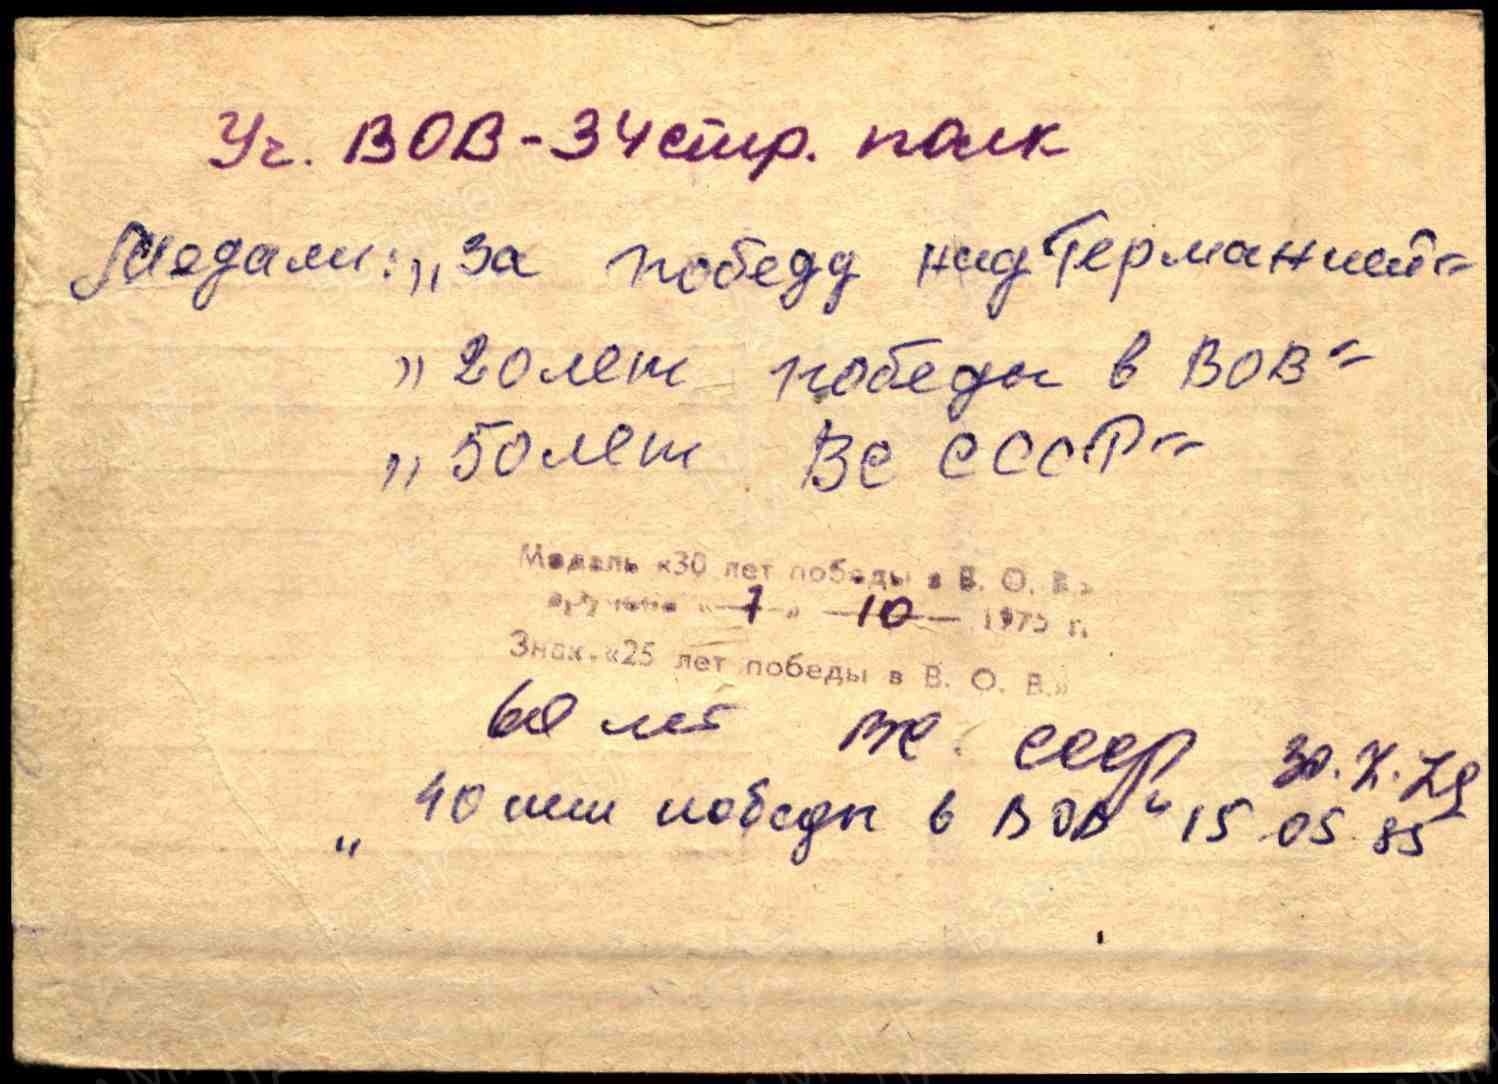 Уч. ВОВ - 34 стр. полк
Медали: „За победу над Германией"
„20 лет победы в ВОВ"
„50 лет ВС СССР"
Медаль «30 лет победы в В. О. В.»
вручена « 7 » 10 1975 г.
Знак «25 лет победы в В. О. В.»
60 лет ВС СССР 30.X.79
„ 40 лет победы в ВОВ" 15 05 85